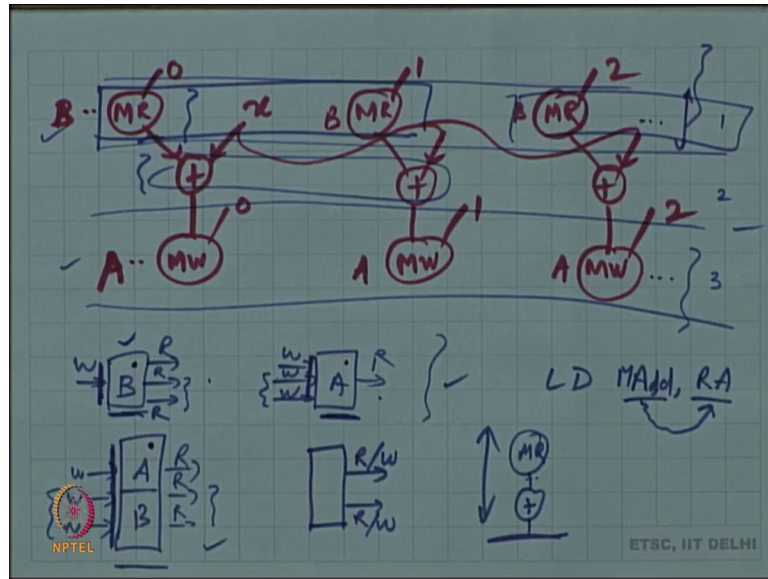 0 1 2
B.. MR x B MR B MR ... 1
+ + + 2
0 1 2
A.. MW A MW A MW ... 3
W B R R R
W W W A R
LD MAdd, RA
W A B R R R
R/W R/W
MR
+
NPTEL
ETSC, IIT DELHI